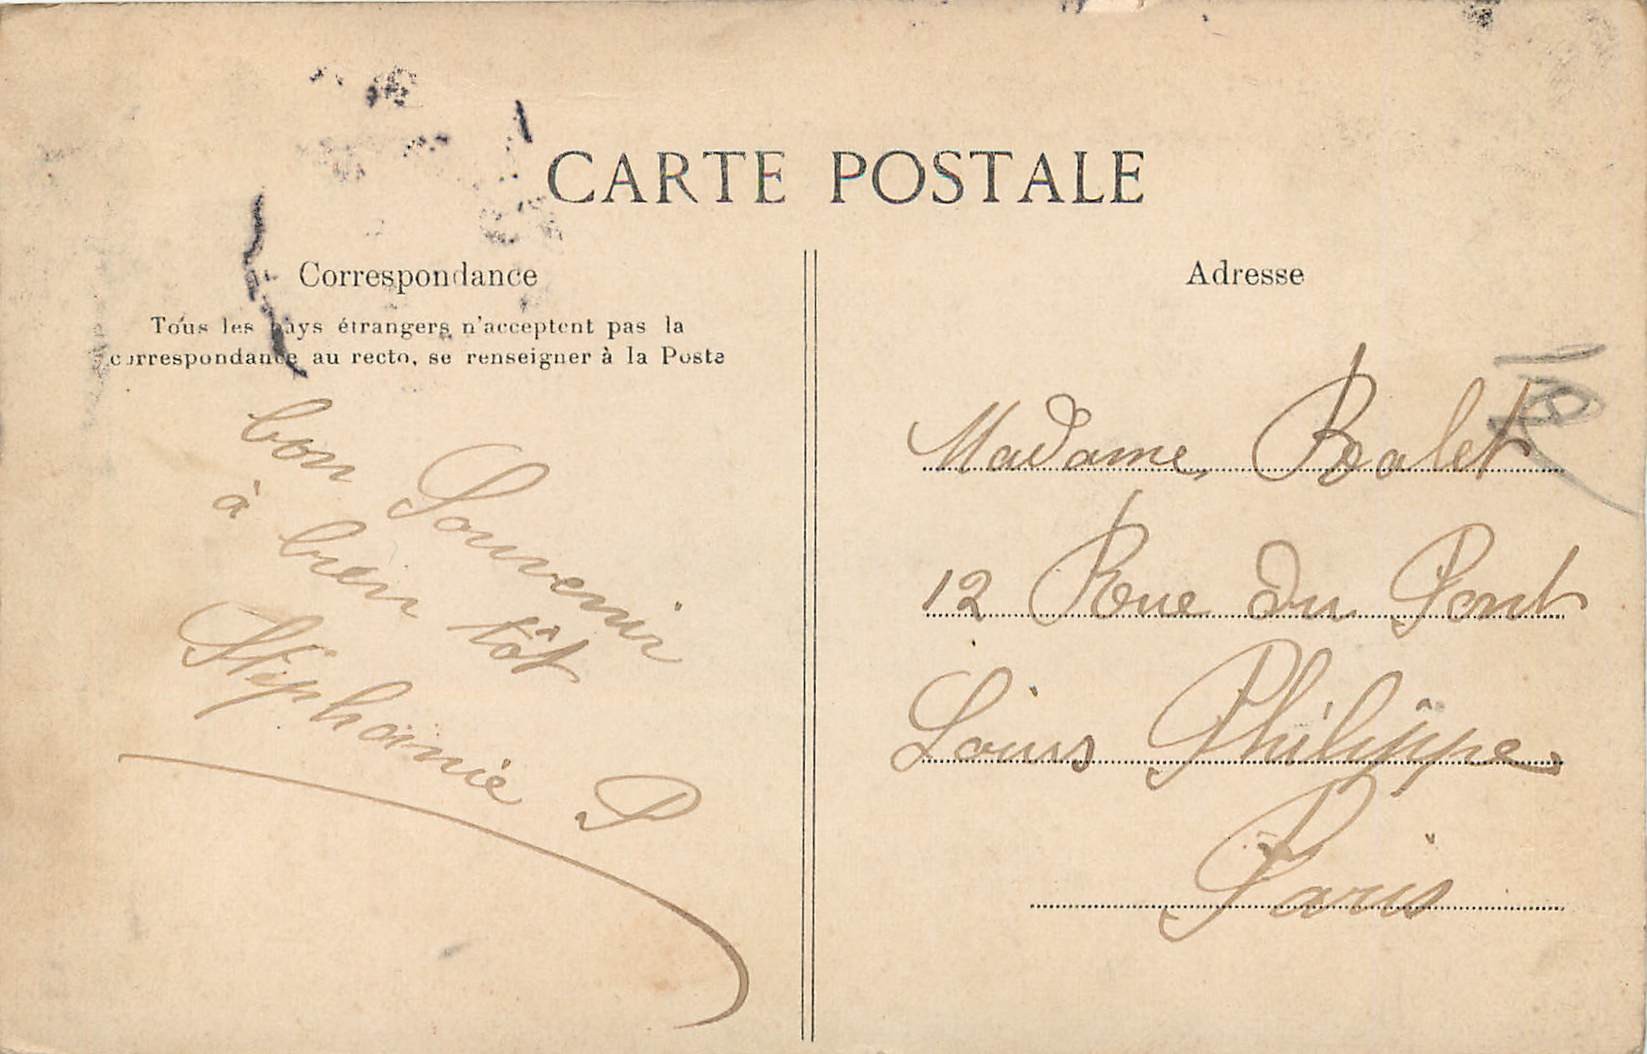 CARTE POSTALE
Correspondance
Tous les pays étrangers n'acceptent pas la
correspondance au recto, se renseigner à la Poste
bon Souvenir
à bien tôt
Stéphanie P
Adresse
Madame Balet
12 Rue du Pont
Louis Philippe
Paris